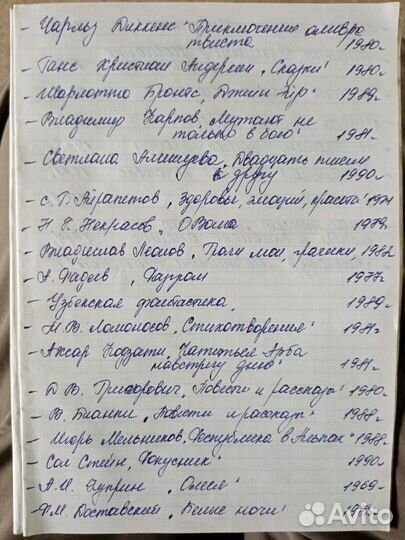 - Чарльз Диккенс „Приключения оливра
твиста 1980г
- Ганс Христиан Андерсен „Сказки" 1980г
- Шарлотта Бронте, „Джейн Эйр" 1989г.
- Владимир Карпов, „Мужают не
только в бою" 1981г.
- Светлана Алилуева, „Двадцать писем
к другу 1990г.
- С. Г. Айрапетов, „Здоровье, эмоции, красота"
- Н. Г. Некрасов, О Волга 1979г
- Владислав Леонов, „Грачи мои, грачики, 1982
- А. Фадеев „Разгром 1977г
- Узбекская фантастика, 1989г
- М. В. Ломоносов, „Стихотворения" 1981г
- Ахсар Кодзати, „Катиться Арба
навстречу дню" 1981г.
- Д В. Григорович, „Повести и рассказы" 1980г.
- В. Бианки, „Повести и рассказы" 1988г.
- Игорь Мельников, в 1988г.
- Сол Стейн, „Фокусник" 1990г.
- А. И. Куприн „Олеся" 1969г
- Ф.М. Достаевский, „Белые ночи"
Avito